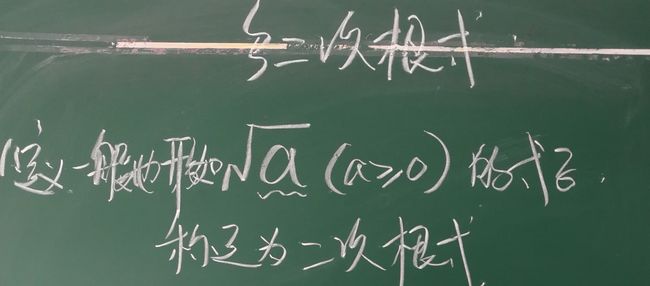 §二次根式
定义 一般地形如√a (a≥0) 的式子.
称之为二次根式